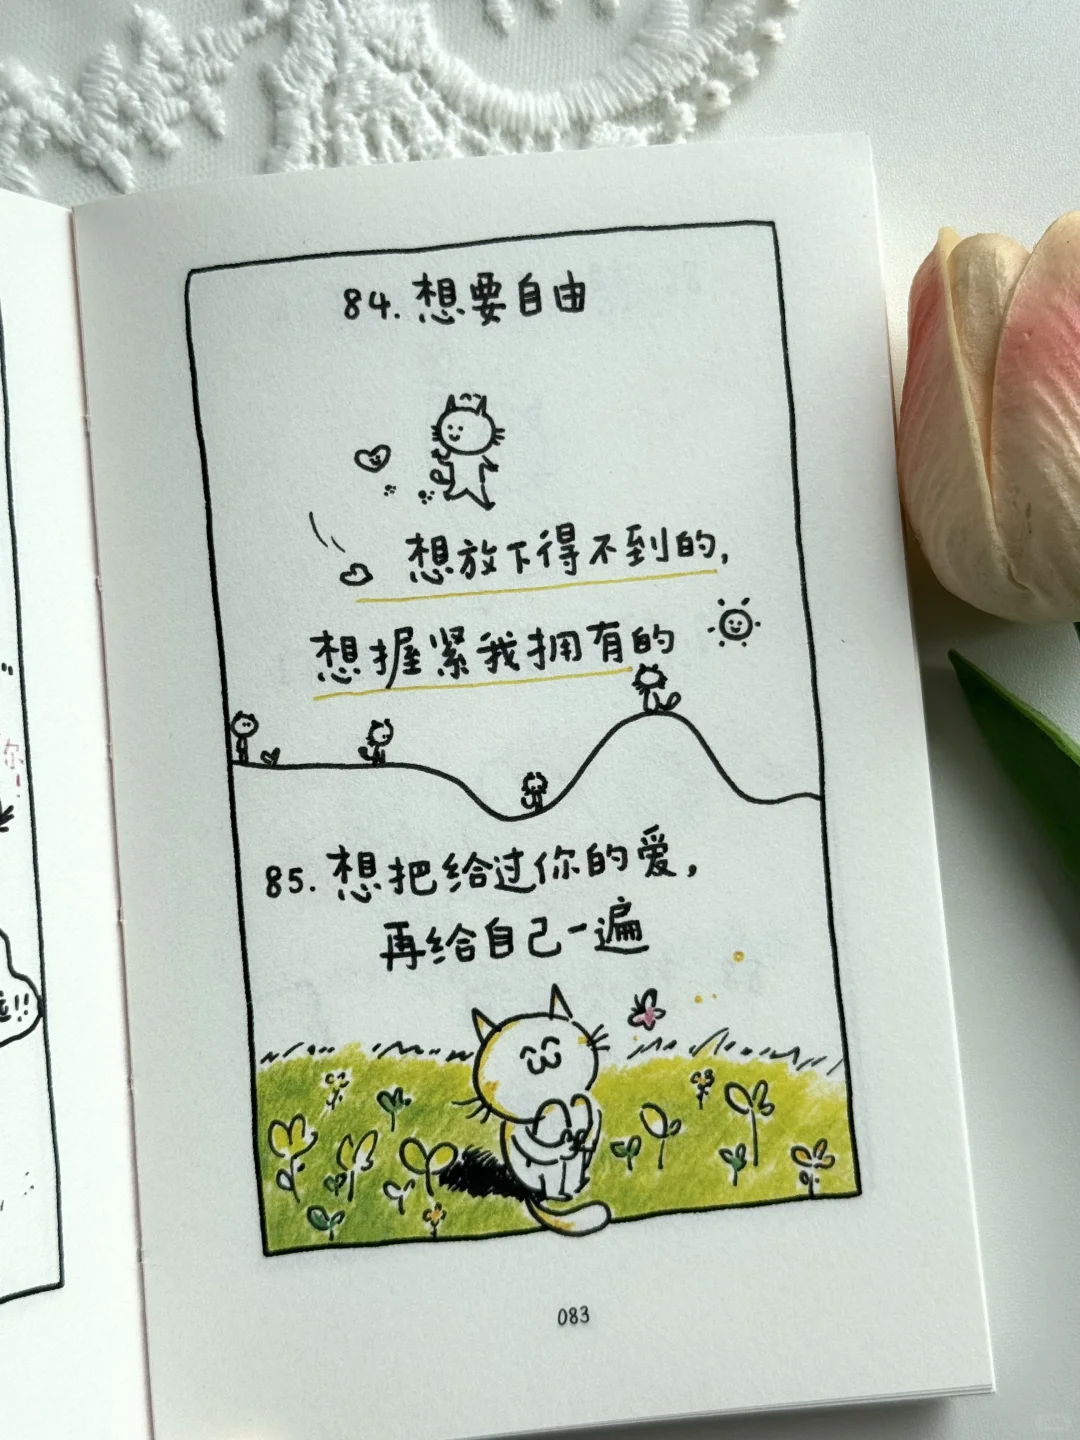 84. 想要自由
想放下得不到的,
想握紧我拥有的
85. 想把给过你的爱,
再给自己一遍
083
你
!!